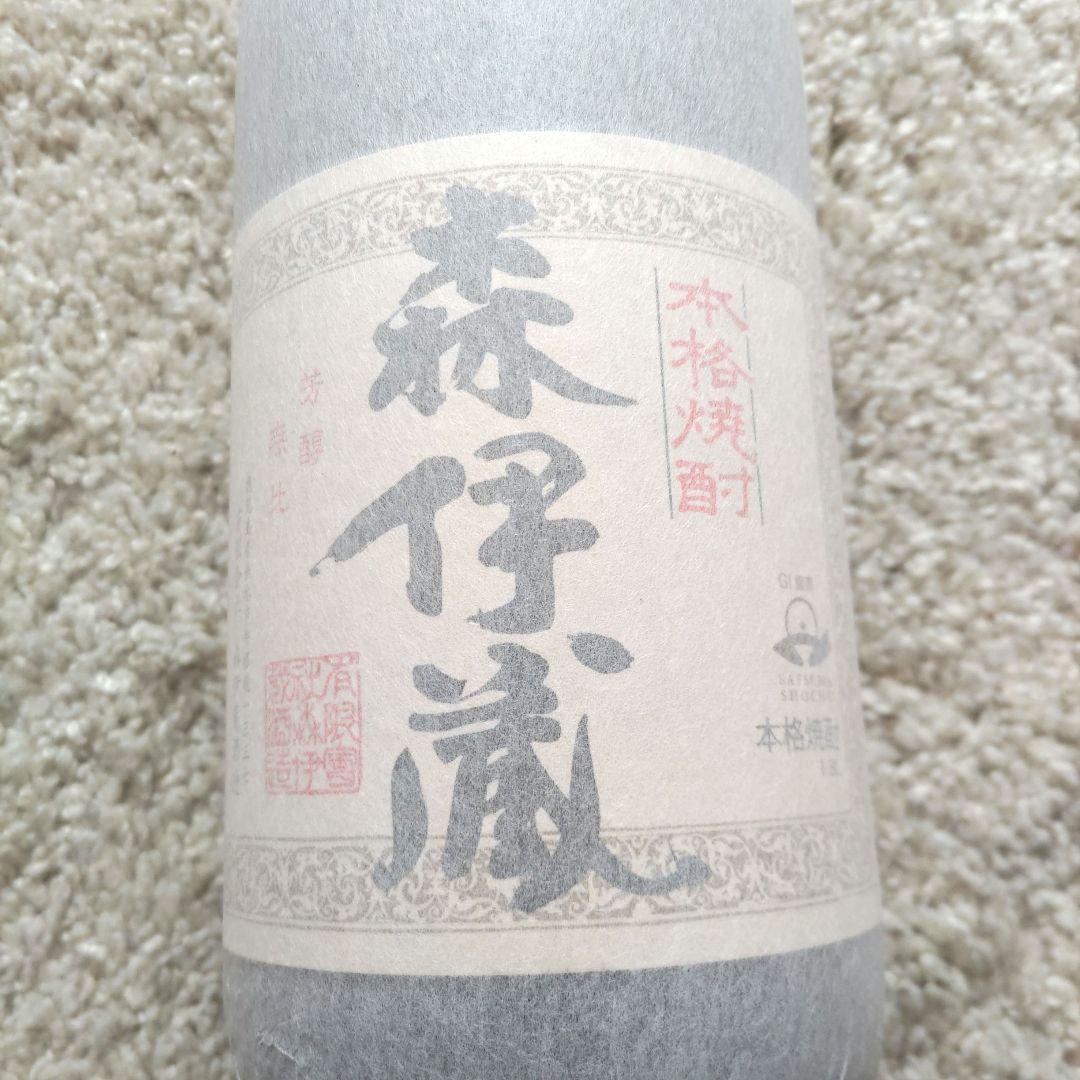 森伊蔵
本格焼酎
芳醇
無比
GI 薩摩
SATSUMA
SHOCHU
本格焼酎
有限会社森伊蔵酒造